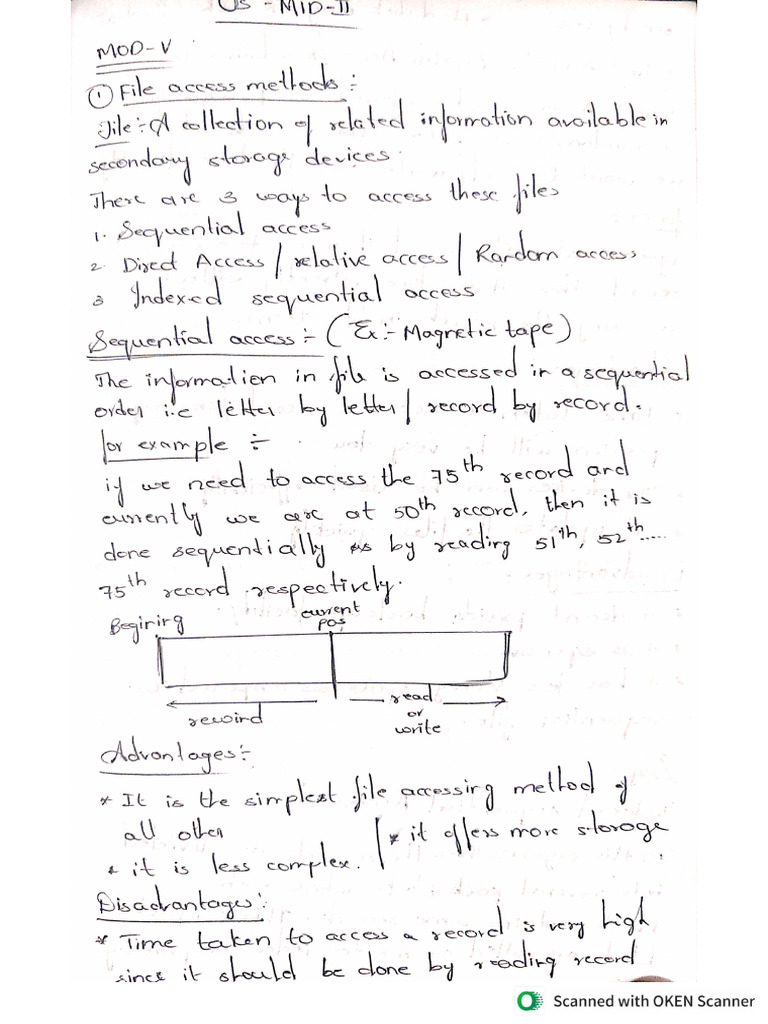 OS - MID-II
MOD-V
① File access methods :-
File :- A collection of related information available in
secondary storage devices.
There are 3 ways to access these files
1. Sequential access
2. Direct Access / relative access / Random access
3 Indexed sequential access
Sequential access :- (Ex :- Magnetic tape)
The information in file is accessed in a sequential
order i.e letter by letter / record by record.
for example ÷
if we need to access the 75th record and
currently we are at 50th record, then it is
done sequentially by reading 51th, 52th.....
75th record respectively.
Begining
current
pos
rewind
read
or
write
Advantages :-
* It is the simplest file accessing method of
all other
* it offers more storage
* it is less complex.
Disadvantages :-
* Time taken to access a record is very high
since it should be done by reading record
Scanned with OKEN Scanner